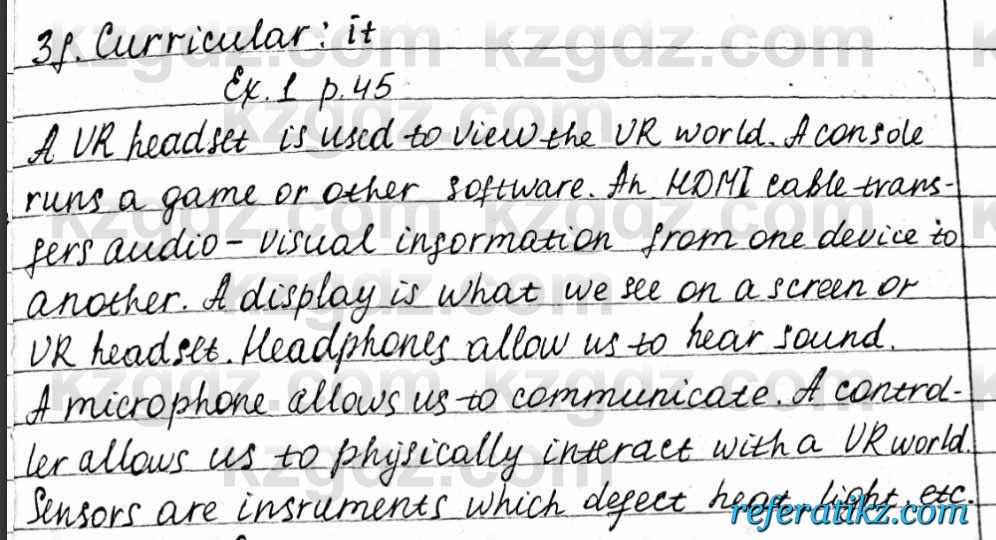 3f. Curricular: it
Ex. 1 p. 45
A VR headset is used to view the VR world. A console
runs a game or other software. An HDMI cable trans-
fers audio - visual information from one device to
another. A display is what we see on a screen or
VR headset. Headphones allow us to hear sound.
A microphone allows us to communicate. A control-
ler allows us to physically interact with a VR world.
Sensors are insruments which defect heat, light, etc.
referatikz.com
kzgdz.com